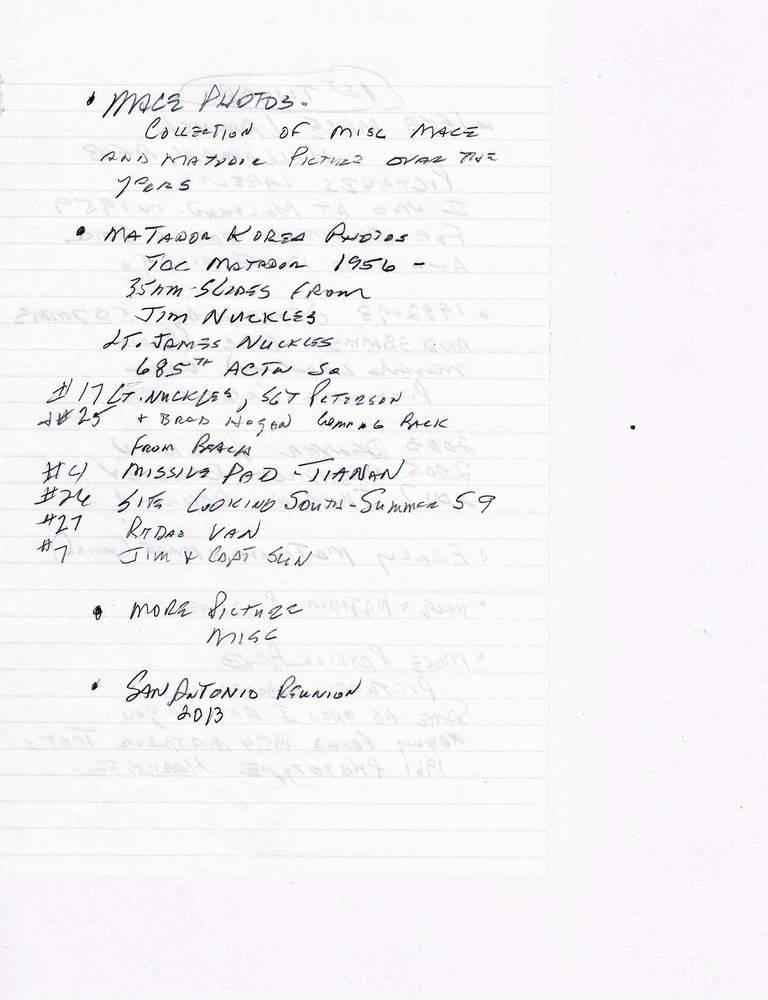 • MACE PHOTOS.
COLLECTION OF MISC MACE
AND MATADOR PICTURE OVER THE
YEARS
• MATADOR KOREA PHOTOS
TAC MATADOR 1956 -
35MM-SLIDES FROM
JIM NUCKLES
LT. JAMES NUCKLES
685TH ACTW SQ
#17 LT. NUCKLES, SGT PETERSON
#25 + BRAD HOGAN COMING BACK
FROM BEACH
#4 MISSILE PAD - TIANAN
#26 SITE LOOKING SOUTH - SUMMER 59
#27 RADAR VAN
#7 JIM & CAPT SUN
• MORE PICTURE
MISC
• SAN ANTONIO REUNION
2013